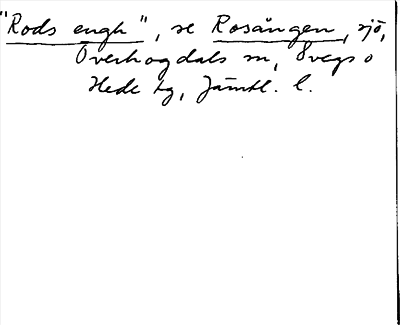 "Rods engh", se Rosången, sjö,
Överhogdals sn, Svegs o
Hede tg, Jämtl. l.